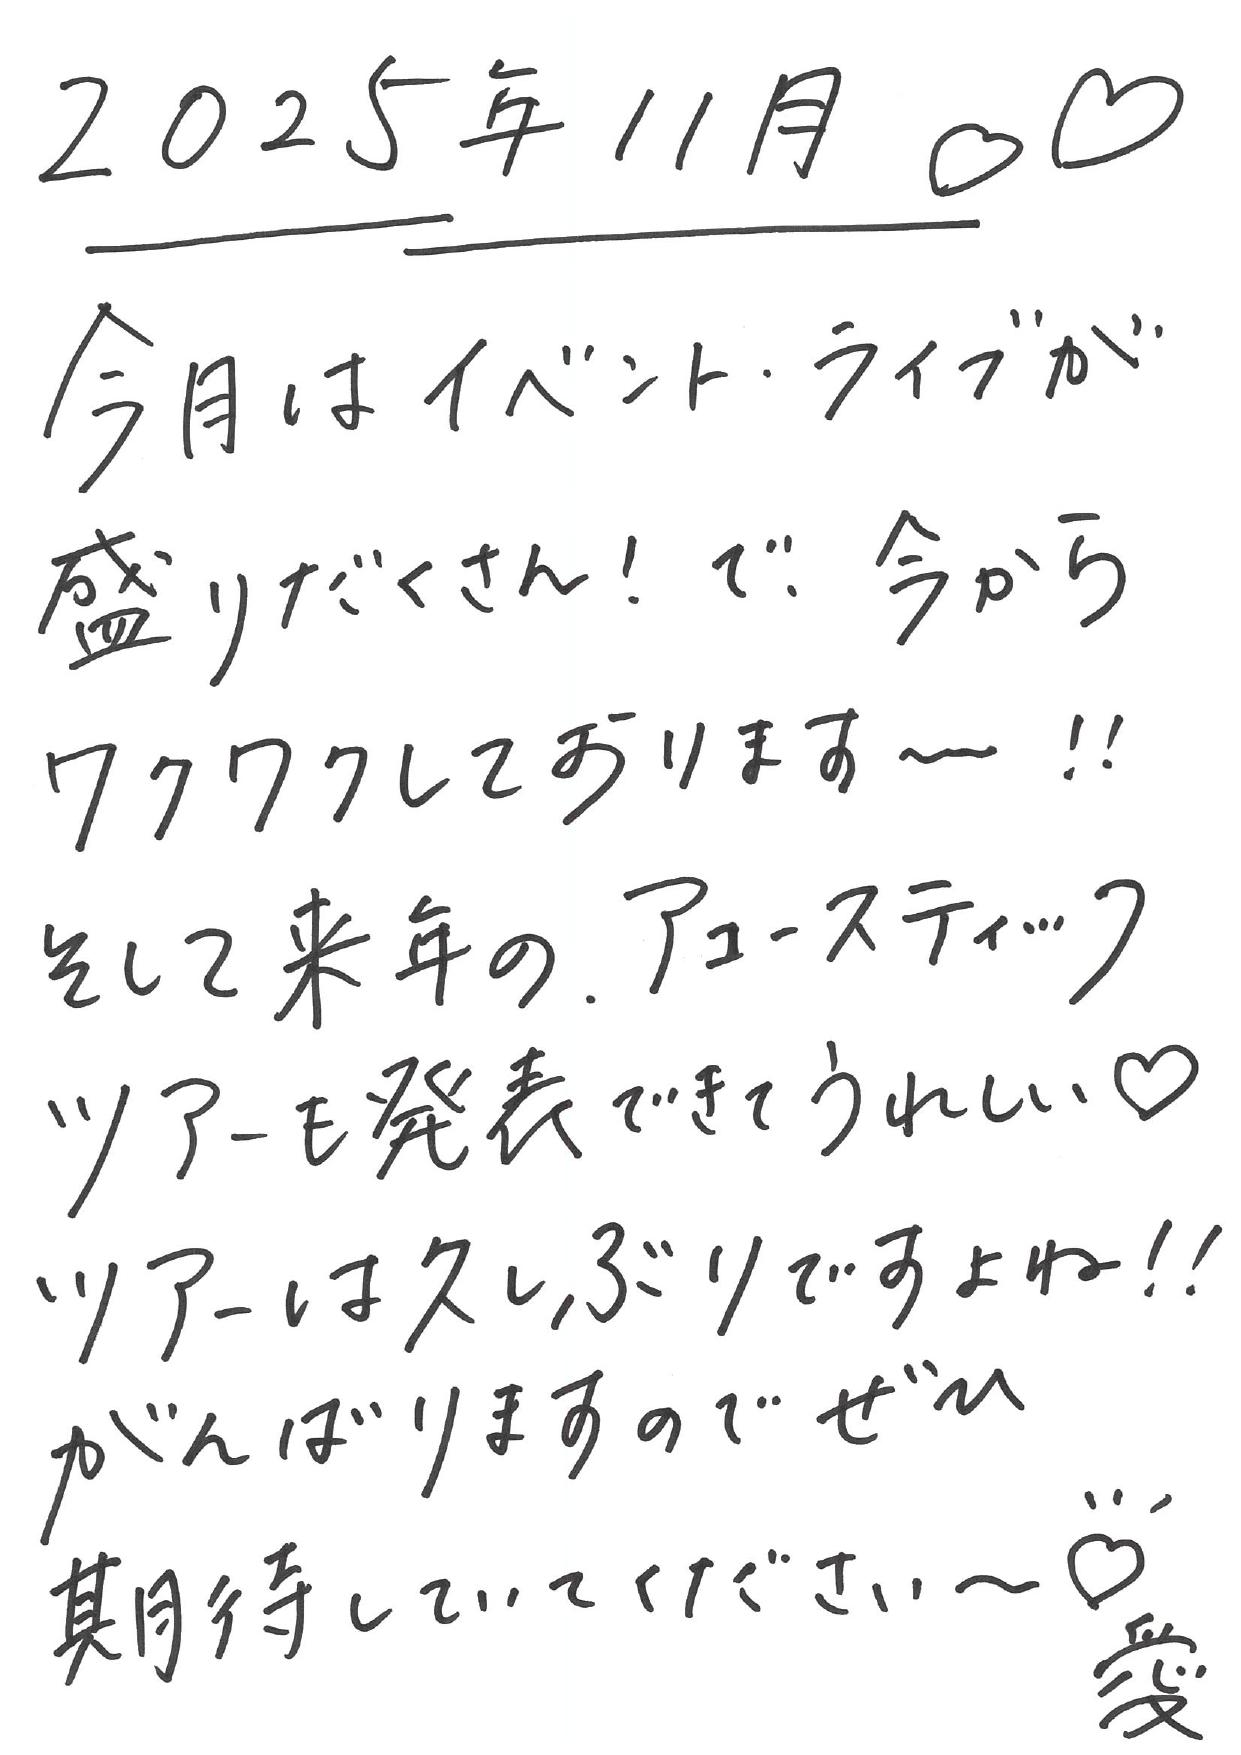 2025年11月 ♡♡
今月はイベント・ライブが
盛りだくさん!で、今から
ワクワクしております〜!!
そして来年の、アコースティック
ツアーも発表できてうれしい♡
ツアーは久しぶりですよね!!
がんばりますのでぜひ
期待していてください〜♡
愛